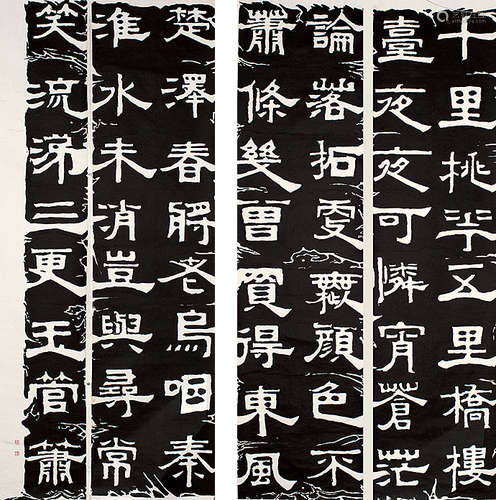 十里桃平五里橋樓
臺夜夜可憐宵蒼茫
論落拓無顏色不
蕭條幾曾買得東風
楚澤春將老烏咽秦
淮水未消豈與尋常
笑流涕三更玉管簫